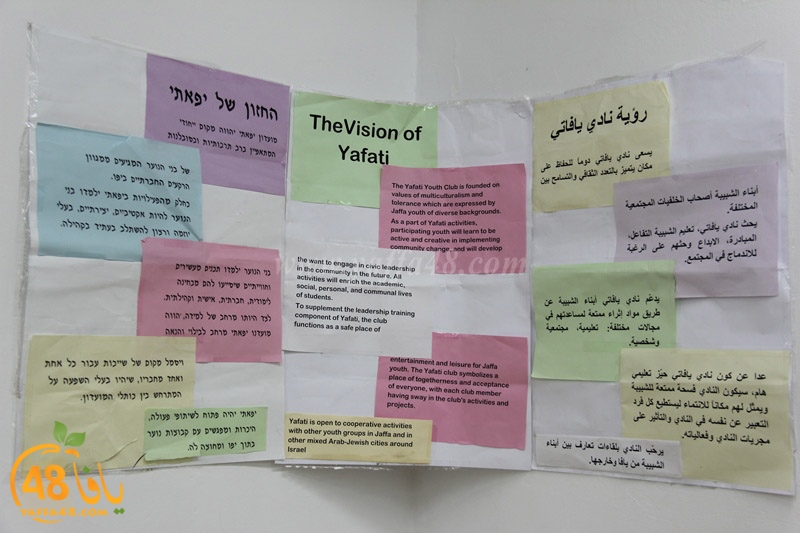 החזון של יפאתי
מועדון יפאתי יהווה מקום ייחודי
המתאפיין ברב תרבותיות ובסובלנות
של בני הנוער המגיעים ממגוון
הרקעים החברתיים ביפו.
כחלק מהפעילויות ביפאתי ילמדו בני
הנוער להיות אקטיביים, יצירתיים, בעלי
יוזמה ורצון להשתלב בעתיד בקהילה.
בני הנוער ילמדו תכנים מעשירים
וחווייתיים שיסייעו להם מבחינה
לימודית, חברתית, אישית וקהילתית.
לצד היותו מרחב של למידה, יהווה
מועדון יפאתי מרחב לבילוי והנאה
ויסמל מקום של שייכות עבור כל אחת
ואחד מחבריו, שיהיו בעלי השפעה על
המתרחש בין כותלי המועדון.
יפאתי יהיה פתוח לשיתופי פעולה,
היכרות ומפגשים עם קבוצות נוער
בתוך יפו ומחוצה לה.
TheVision of
Yafati
The Yafati Youth Club is founded on
values of multiculturalism and
tolerance which are expressed by
Jaffa youth of diverse backgrounds.
As a part of Yafati activities,
participating youth will learn to be
active and creative in implementing
community change, and will develop
the want to engage in civic leadership
in the community in the future. All
activities will enrich the academic,
social, personal, and communal lives
of students.
To supplement the leadership training
component of Yafati, the club
functions as a safe place of
entertainment and leisure for Jaffa
youth. The Yafati club symbolizes a
place of togetherness and acceptance
of everyone, with each club member
having sway in the club's activities and
projects.
Yafati is open to cooperative activities
with other youth groups in Jaffa and in
other mixed Arab-Jewish cities around
Israel
رؤية نادي يافاتي
يسعى نادي يافاتي دوماً للحفاظ على
مكان يتميز بالتعدد الثقافي والتسامح بين
أبناء الشبيبة أصحاب الخلفيات المجتمعية
المختلفة.
يحث نادي يافاتي، تعليم الشبيبة التفاعل،
المبادرة، الابداع وحثهم على الرغبة
للاندماج في المجتمع.
يدعم نادي يافاتي أبناء الشبيبة عن
طريق مواد إثراء ممتعة لمساعدتهم في
مجالات مختلفة: تعليمية، مجتمعية
وشخصية.
عدا عن كون نادي يافاتي حيّز تعليمي
هام، سيكون النادي فسحة ممتعة للشبيبة
ويمثل لهم مكاناً للانتماء ليستطيع كل فرد
التعبير عن نفسه في النادي والتأثير على
مجريات النادي وفعالياته.
يرحّب النادي بلقاءات تعارف بين أبناء
الشبيبة من يافا وخارجها.
يافا 48
yaffa48.com